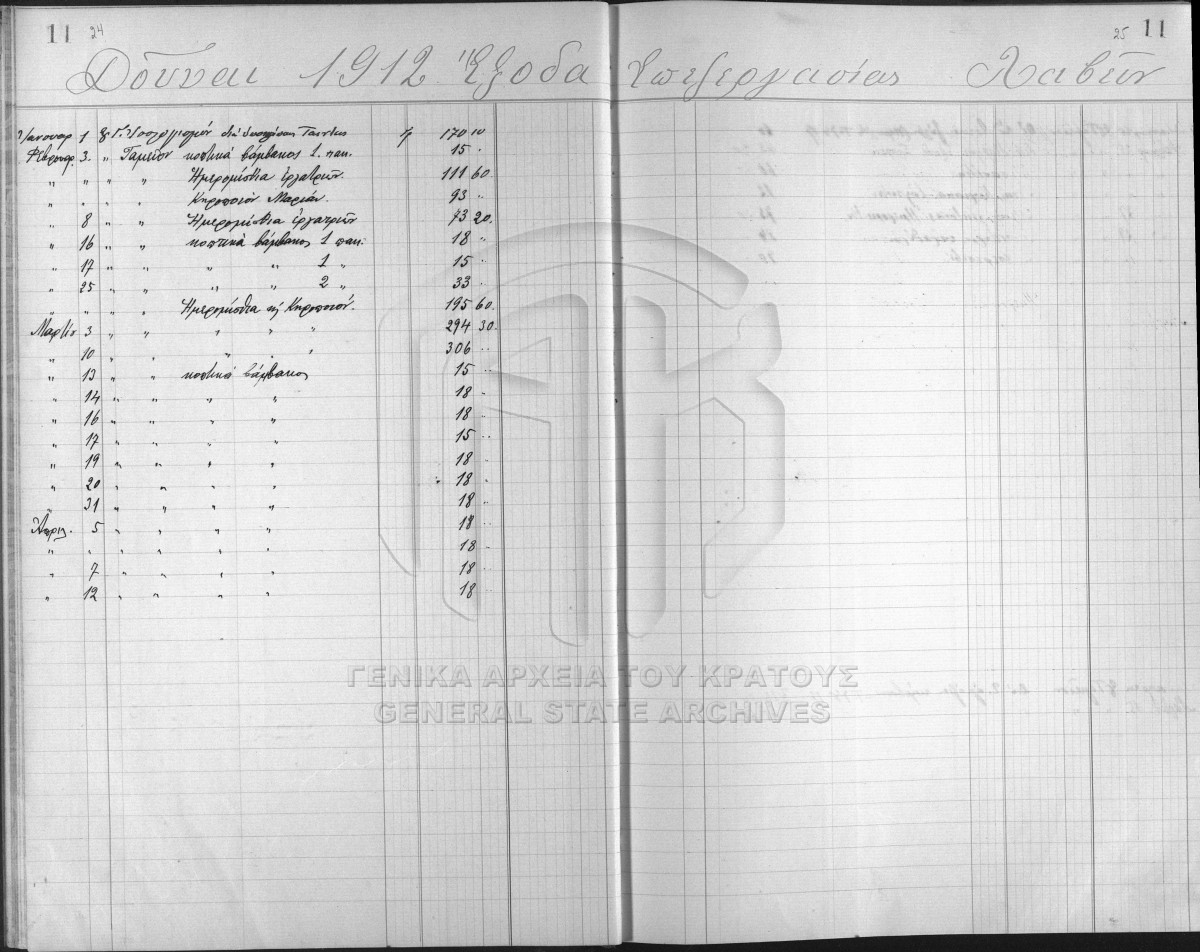 11 24
25 11
Δοῦναι 1912 Ἔξοδα Ἐπεξεργασίας Λαβεῖν
Ἰανουαρ 1 Ἐξ 7 170 10
Φεβρουαρ. 3. " Ταμεῖον κοπτικά βάμβακος 1. πακ. 15 "
" " " " Ἡμερομίσθια ἐργατριῶν. 111 60
" " " " Κηροποιόν Μαρίαν. 93 "
" 8 " " Ἡμερομίσθια ἐργατριῶν 73 20.
" 16 " " κοπτικά βάμβακος 1 πακ. 18 "
" 17 " " " " 1 " 15 "
" 25 " " " " 2 " 33 "
" " " " Ἡμερομίσθια κ Κηροποιόν. 195 60.
Μαρτίου 3 " " " " " 294 30.
" 10 " " " " " 306 "
" 13 " " κοπτικά βάμβακος 15 "
" 14 " " " " 18 "
" 16 " " " " 18 "
" 17 " " " " 15 "
" 19 " " " " 18 "
" 20 " " " " 18 "
" 31 " " " " 18 "
Ἀπριλ. 5 " " " " 18 "
" " " " " " 18 "
" 7 " " " " 18 "
" 12 " " " " 18 "
ΓΕΝΙΚΑ ΑΡΧΕΙΑ ΤΟΥ ΚΡΑΤΟΥΣ
GENERAL STATE ARCHIVES